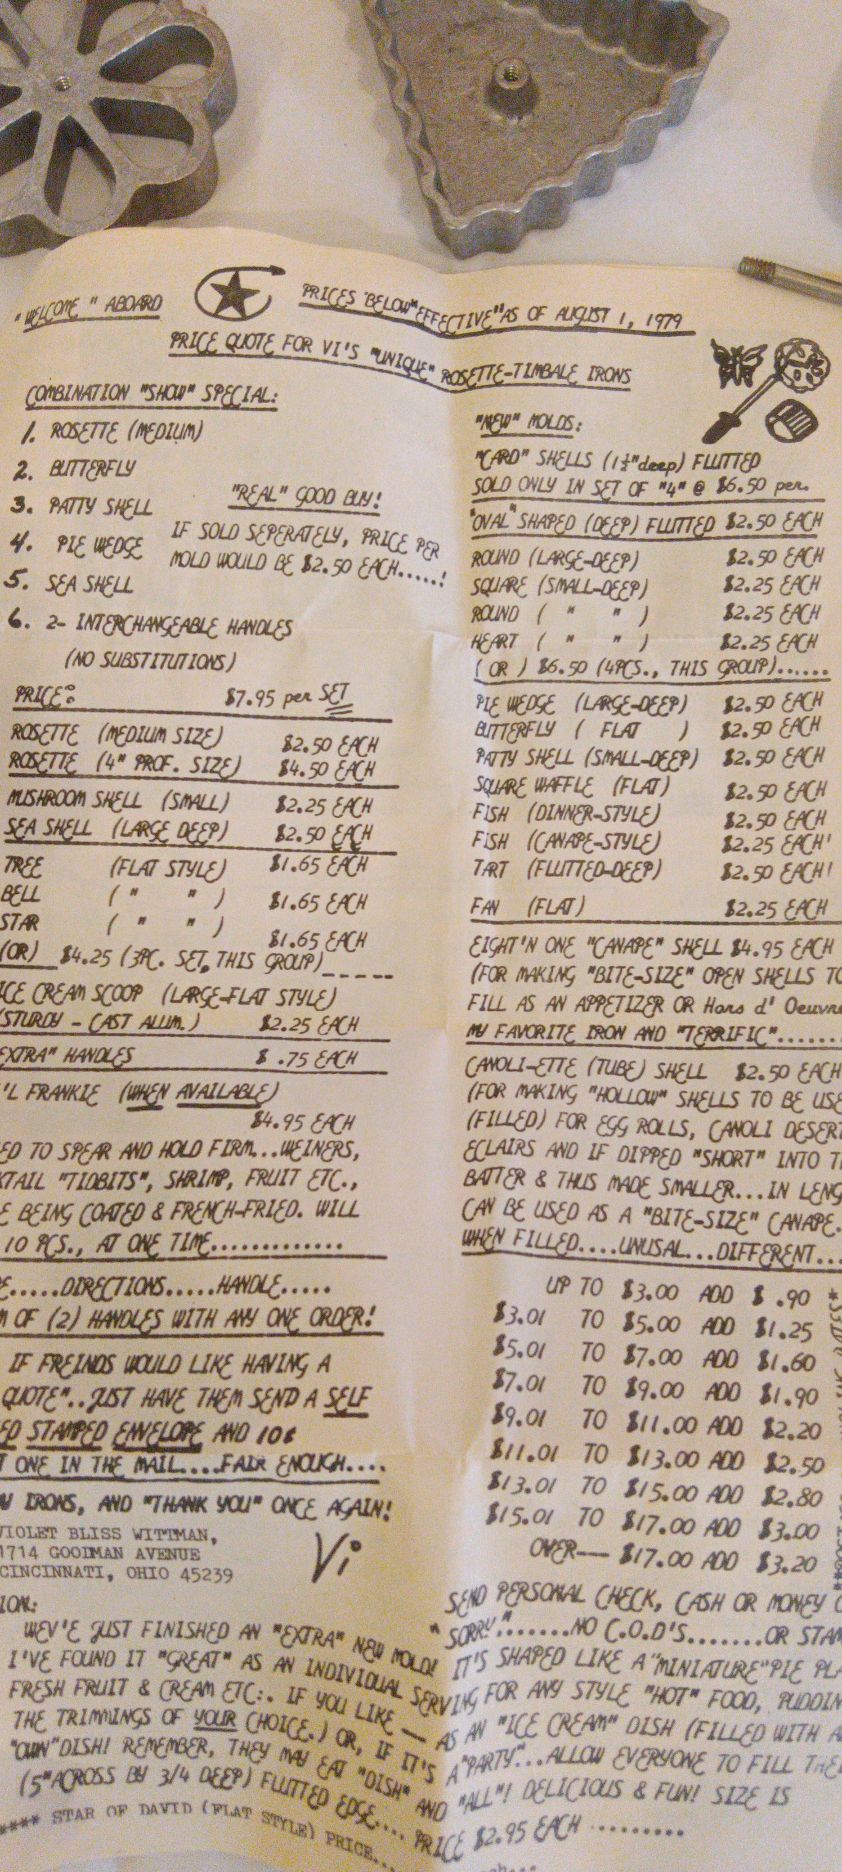 "WELCOME" ABOARD
PRICES "BELOW" EFFECTIVE "AS OF AUGUST 1, 1979
PRICE QUOTE FOR VI'S "UNIQUE" ROSETTE-TIMBALE IRONS
COMBINATION "SHOW" SPECIAL:
1. ROSETTE (MEDIUM)
2. BUTTERFLY
3. PATTY SHELL
"REAL" GOOD BUY!
4. PIE WEDGE
IF SOLD SEPERATELY, PRICE PER
MOLD WOULD BE $2.50 EACH.....!
5. SEA SHELL
6. 2- INTERCHANGEABLE HANDLES
(NO SUBSTITUTIONS)
PRICE: $7.95 per SET
ROSETTE (MEDIUM SIZE) $2.50 EACH
ROSETTE (4" PROF. SIZE) $4.50 EACH
MUSHROOM SHELL (SMALL) $2.25 EACH
SEA SHELL (LARGE DEEP) $2.50 EACH
TREE (FLAT STYLE) $1.65 EACH
BELL ( " " ) $1.65 EACH
STAR ( " " ) $1.65 EACH
(OR) $4.25 (3PC. SET, THIS GROUP)-----
ICE CREAM SCOOP (LARGE-FLAT STYLE)
(STURDY - CAST ALUM.) $2.25 EACH
EXTRA" HANDLES $ .75 EACH
'L FRANKIE (WHEN AVAILABLE)
$4.95 EACH
ED TO SPEAR AND HOLD FIRM...WEINERS,
KTAIL "TIDBITS", SHRIMP, FRUIT ETC.,
E BEING COATED & FRENCH-FRIED. WILL
10 PCS., AT ONE TIME.............
E.....DIRECTIONS.....HANDLE.....
M OF (2) HANDLES WITH ANY ONE ORDER!
IF FREINDS WOULD LIKE HAVING A
QUOTE"..JUST HAVE THEM SEND A SELF
ED STAMPED ENVELOPE AND 10¢
T ONE IN THE MAIL....FAIR ENOUGH....
W IRONS, AND "THANK YOU" ONCE AGAIN!
VIOLET BLISS WITTMAN,
1714 GOODMAN AVENUE
CINCINNATI, OHIO 45239
Vi
"NEW" MOLDS:
"CARD" SHELLS (1½"deep) FLUTTED
SOLD ONLY IN SET OF "4" @ $6.50 per.
"OVAL" SHAPED (DEEP) FLUTTED $2.50 EACH
ROUND (LARGE-DEEP) $2.50 EACH
SQUARE (SMALL-DEEP) $2.25 EACH
ROUND ( " " ) $2.25 EACH
HEART ( " " ) $2.25 EACH
( OR ) $6.50 (4PCS., THIS GROUP)......
PIE WEDGE (LARGE-DEEP) $2.50 EACH
BUTTERFLY ( FLAT ) $2.50 EACH
PATTY SHELL (SMALL-DEEP) $2.50 EACH
SQUARE WAFFLE (FLAT) $2.50 EACH
FISH (DINNER-STYLE) $2.50 EACH
FISH (CANAPE-STYLE) $2.25 EACH'
TART (FLUTTED-DEEP) $2.50 EACH!
FAN (FLAT) $2.25 EACH
EIGHT'N ONE "CANAPE" SHELL $4.95 EACH
(FOR MAKING "BITE-SIZE" OPEN SHELLS TO
FILL AS AN APPETIZER OR Hors d' Oeuvre
MY FAVORITE IRON AND "TERRIFIC".......
CANOLI-ETTE (TUBE) SHELL $2.50 EACH
(FOR MAKING "HOLLOW" SHELLS TO BE USE
(FILLED) FOR EGG ROLLS, CANOLI DESERT
ECLAIRS AND IF DIPPED "SHORT" INTO T
BATTER & THUS MADE SMALLER...IN LENG
CAN BE USED AS A "BITE-SIZE" CANAPE.
WHEN FILLED....UNUSAL...DIFFERENT...
UP TO $3.00 ADD $ .90
$3.01 TO $5.00 ADD $1.25
$5.01 TO $7.00 ADD $1.60
$7.01 TO $9.00 ADD $1.90
$9.01 TO $11.00 ADD $2.20
$11.01 TO $13.00 ADD $2.50
$13.01 TO $15.00 ADD $2.80
$15.01 TO $17.00 ADD $3.00
OVER--- $17.00 ADD $3.20
SEND PERSONAL CHECK, CASH OR MONEY O
* SORRY."......NO C.O.D'S.......OR STAM
ION:
WEV'E JUST FINISHED AN "EXTRA" NEW MOLD! IT'S SHAPED LIKE A "MINIATURE" PIE PLA
I'VE FOUND IT "GREAT" AS AN INDIVIDUAL SERVING FOR ANY STYLE "HOT" FOOD, PUDDIN
FRESH FRUIT & CREAM ETC:. IF YOU LIKE -- AS AN "ICE CREAM" DISH (FILLED WITH A
THE TRIMMINGS OF YOUR CHOICE.) OR, IF IT'S A "PARTY"...ALLOW EVERYONE TO FILL THE
"OWN" DISH! REMEMBER, THEY MAY EAT "DISH" AND "ALL"! DELICIOUS & FUN! SIZE IS
(5" ACROSS BY 3/4 DEEP) FLUTTED EDGE.... PRICE $2.95 EACH .........
**** STAR OF DAVID (FLAT STYLE) PRICE...